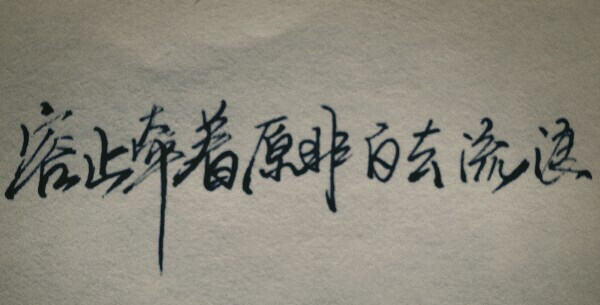 容止牵着原非白去流浪